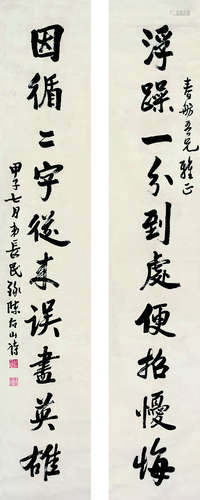 春舫吾兄雅正
浮躁一分到處便招懮悔
因循二字從來誤盡英雄
甲子七月弟長民錄陳右山詩